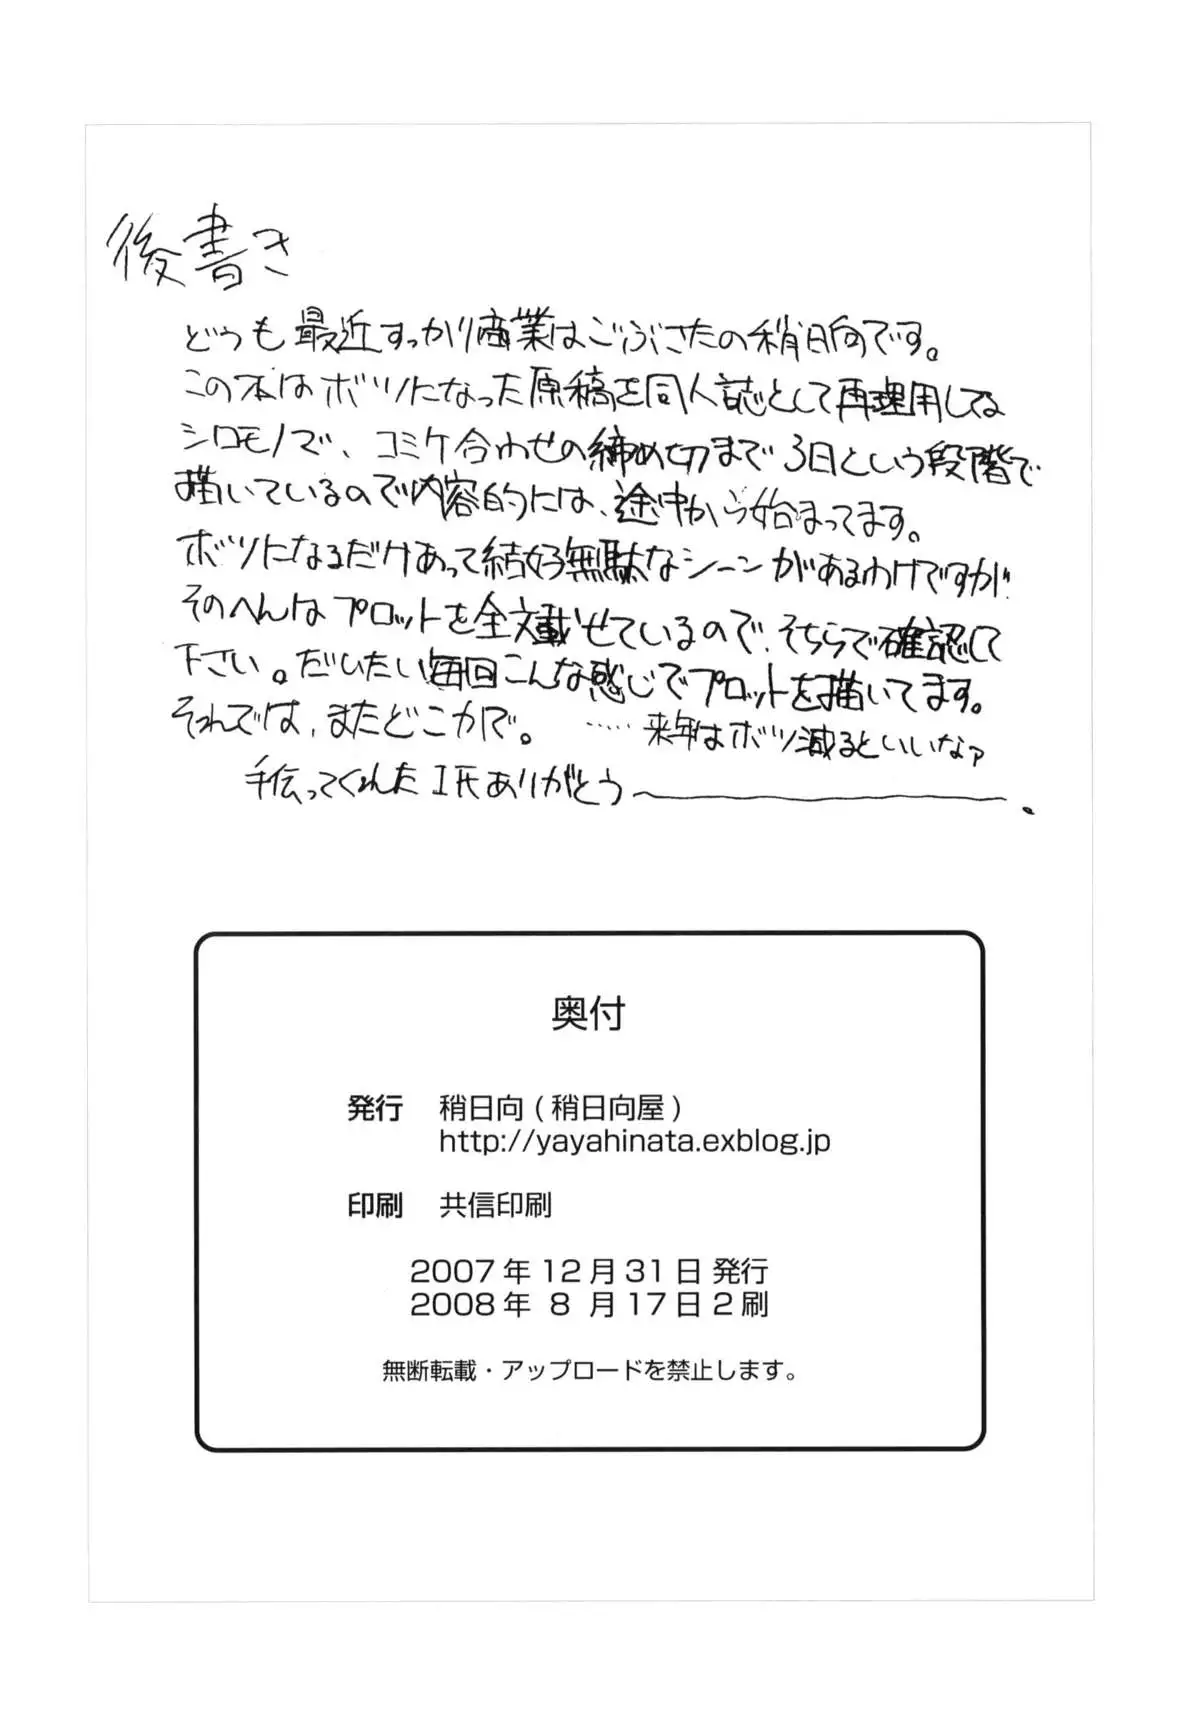 後書き
どうも最近すっかり商業はごぶさたの稍日向です。
この本はボツになった原稿を同人誌として再理用してる
シロモノで、コミケ合わせの締め切まで3日という段階で
描いているので内容的には、途中から始まってます。
ボツになるだけあって結好無駄なシーンがあるわけですが
そのへんはプロットを全文載せているので、そちらで確認して
下さい。だいたい毎回こんな感じでプロットを描いてます。
それでは、またどこかで。 ……来年はボツ減るといいなァ
手伝ってくれたI氏ありがとう〜。
奥付
発行 稍日向 ( 稍日向屋 )
http://yayahinata.exblog.jp
印刷 共信印刷
2007 年 12 月 31 日 発行
2008 年 8 月 17 日 2 刷
無断転載・アップロードを禁止します。